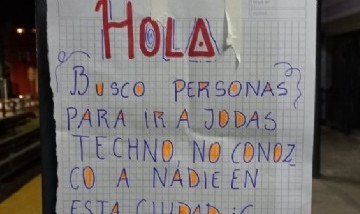 HOLA
BUSCO PERSONAS
PARA IR A JODAS
TECHNO, NO CONOZ
CO A NADIE EN
ESTA CIUDAD :C